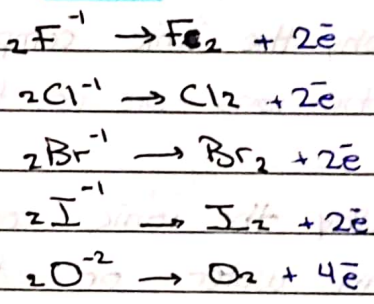 ₂F⁻¹ → Fe₂ + 2ē
₂Cl⁻¹ → Cl₂ + 2ē
₂Br⁻¹ → Br₂ + 2ē
₂I⁻¹ → I₂ + 2ē
₂O⁻² → O₂ + 4ē